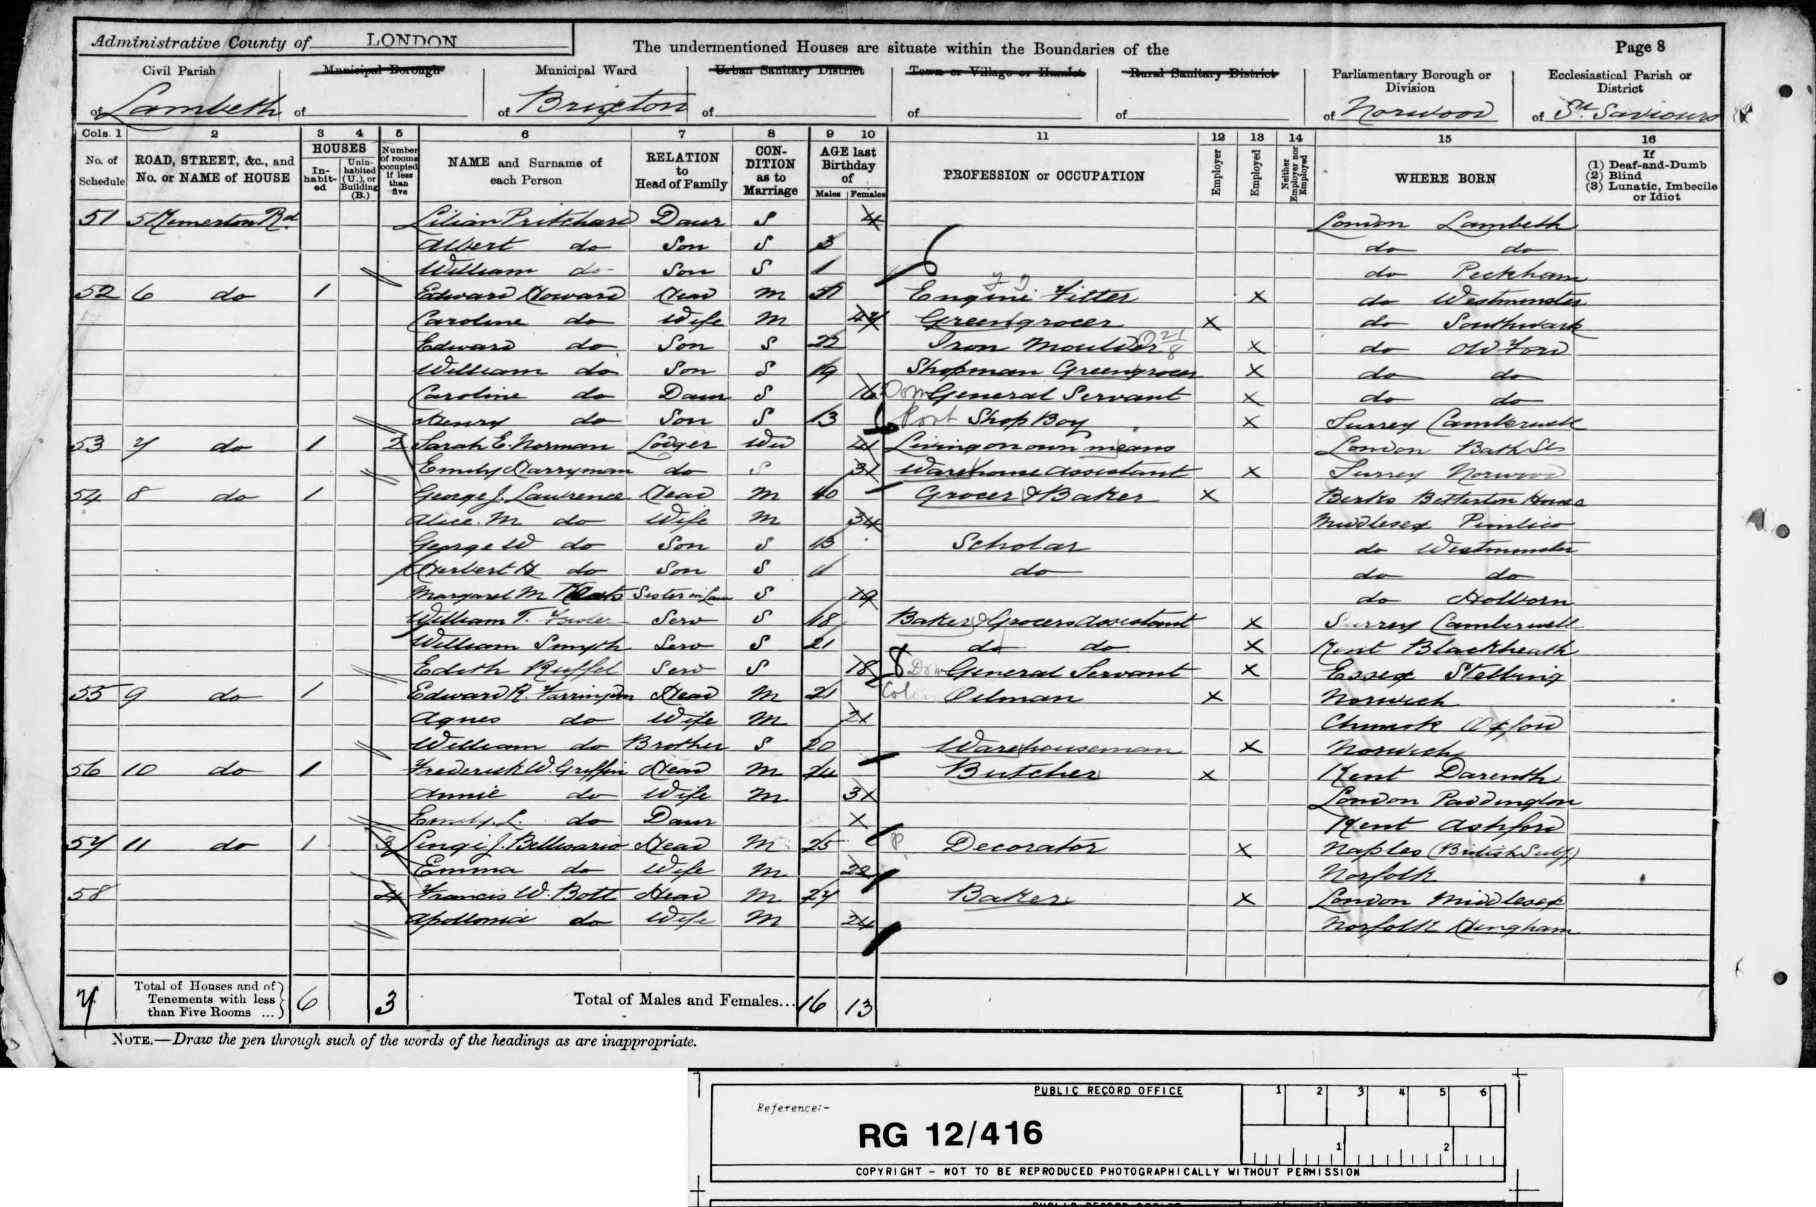 Administrative County of LONDON
The undermentioned Houses are situate within the Boundaries of the
Page 8
Civil Parish of Lambeth
Municipal Borough of
Municipal Ward of Brixton
Urban Sanitary District of
Town or Village or Hamlet of
Rural Sanitary District of
Parliamentary Borough or Division of Norwood
Ecclesiastical Parish or District of St Saviours
Cols. 1 2 3 4 5 6 7 8 9 10 11 12 13 14 15 16
No. of Schedule
ROAD, STREET, &c., and No. or NAME of HOUSE
HOUSES
In-habit-ed
Unin-habited (U.), or Building (B.)
Number of rooms occupied if less than five
NAME and Surname of each Person
RELATION to Head of Family
CON-DITION as to Marriage
AGE last Birthday of
Males Females
PROFESSION or OCCUPATION
Employer
Employed
Neither Employer nor Employed
WHERE BORN
If (1) Deaf-and-Dumb (2) Blind (3) Lunatic, Imbecile or Idiot
51 5 Rd Lilian Pritchard Daur S 4 London Lambeth
Albert do Son S 3 do do
William do Son S 1 do Peckham
52 6 do 1 Edward Howard Head M Engine Fitter X do Westminster
Caroline do Wife M 47 Greengrocer X do Southwark
Edward do Son S 22 Iron Moulder X do Old Ford
William do Son S 19 Shopman Greengrocer X do do
Caroline do Daur S 16 Dom General Servant X do do
Henry do Son S 13 Shop Boy X Surrey Camberwell
53 7 do 1 2 Sarah E. Norman Lodger Wid 41 Living on own means London Bath St
Emily Harryman do S 31 Warehouse Assistant X Surrey Norwood
54 8 do 1 George J. Lawrence Head M 40 Grocer & Baker X Berks
Alice M do Wife M 34 Middlesex Pimlico
George W do Son S 13 Scholar do Westminster
Herbert H do Son S 11 do do do
Margaret M Sister in Law S 29 do Holborn
William T. Serv S 18 Baker & Grocers Assistant X Surrey Camberwell
William Smyth Serv S 21 do do X Kent Blackheath
Edith Ruffel Serv S 18 Dom General Servant X Essex
55 9 do 1 Edward R. Farrington Head M 21 Oilman X Norwich
Agnes do Wife M 21 Oxford
William do Brother S 20 Warehouseman X Norwich
56 10 do 1 Frederick W. Griffin Head M 24 Butcher X Kent Darenth
Annie do Wife M London Paddington
Emily L. do Daur Kent Ashford
57 11 do 1 J. Bellisario Head M 25 Decorator X Naples (British Subj)
Emma do Wife M 22 Norfolk
58 Francis W. Bott Head M 27 Baker X London Middlesex
Apollonia do Wife M 24 Norfolk Hingham
7 Total of Houses and of Tenements with less than Five Rooms ... 6 3 Total of Males and Females... 16 13
NOTE.—Draw the pen through such of the words of the headings as are inappropriate.
PUBLIC RECORD OFFICE
1 2 3 4 5 6
Reference:-
RG 12/416
1 2
COPYRIGHT - NOT TO BE REPRODUCED PHOTOGRAPHICALLY WITHOUT PERMISSION